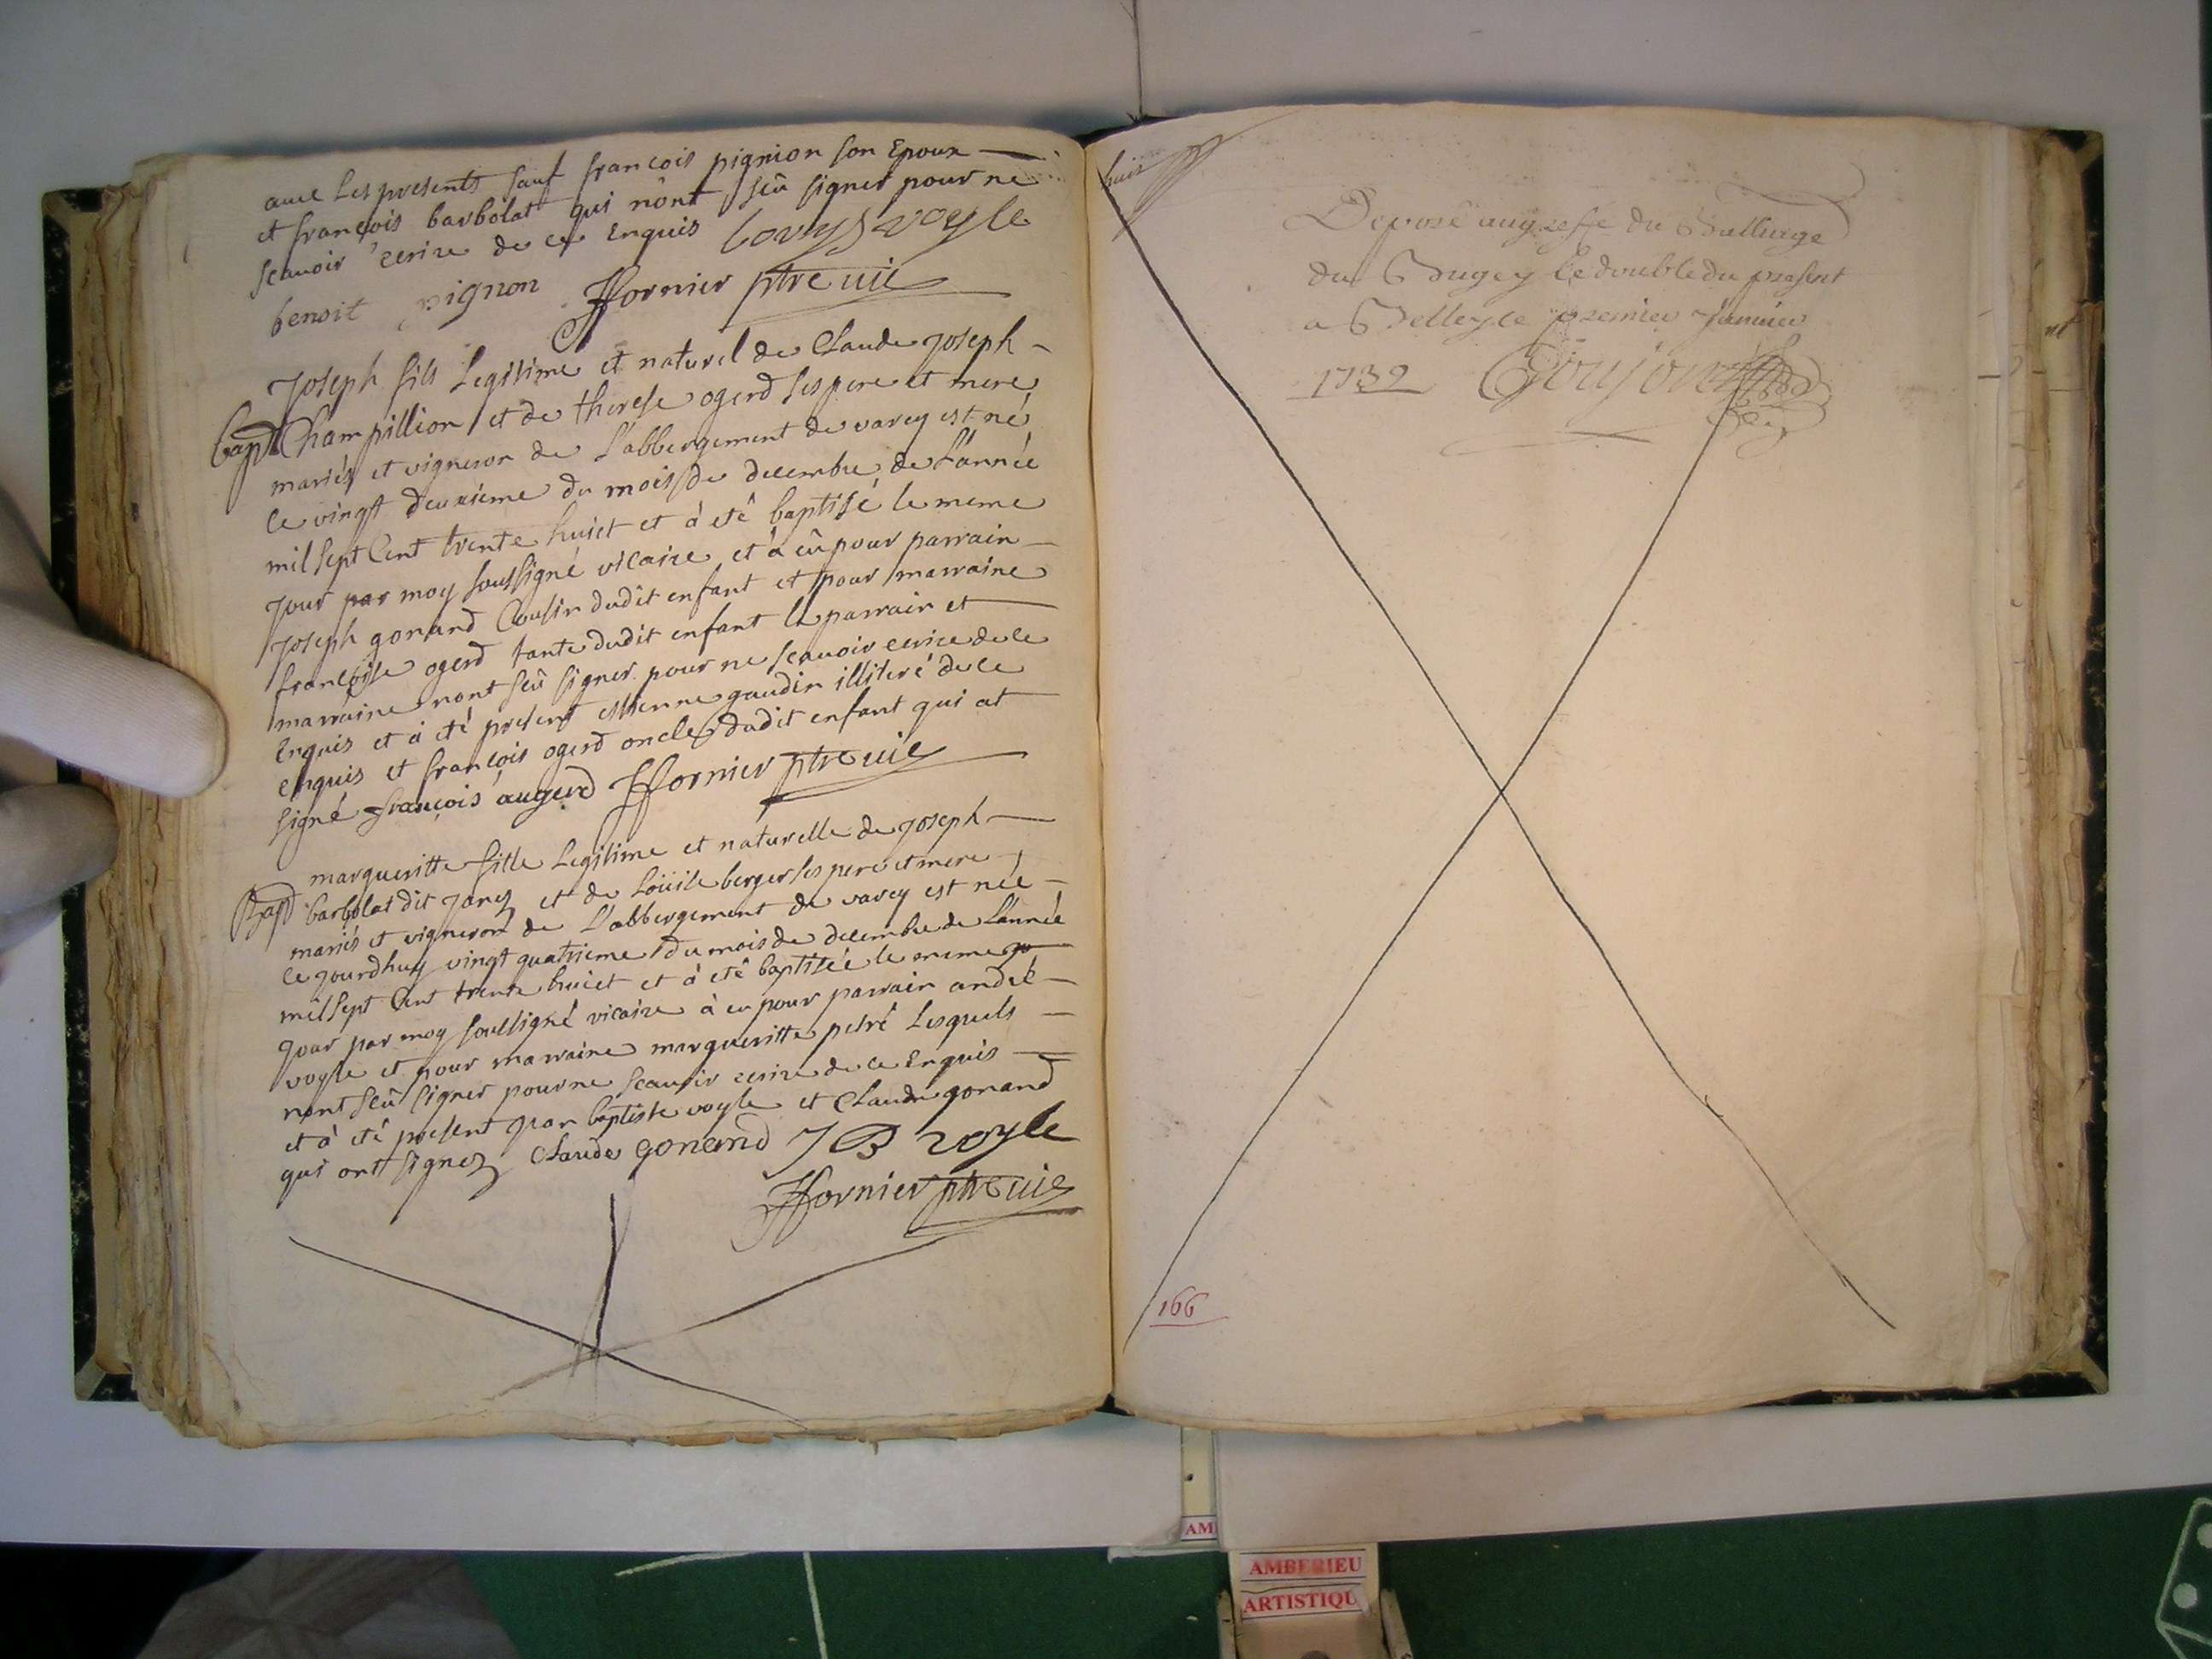 avec les presents sauf francois pignion son Epoux
et francois barbolat qui nônt seû signer pour ne
scauoir ecrire de ce Enquis Lovys voyle
benoit pignon ffornier ptre vic
Joseph fils Legitime et naturel de Claude Joseph
bapt Champillion et de therese ogerd ses pere et mere
mariés et vigneron de L'abbergement de varey est né
le vingt deuxieme du mois de decembre de L'année
mil sept Cent trente huict et à eté baptisé le meme
Jour par moy soussigné vicaire et à eû pour parrain
Joseph gonand Cousin dudit enfant et pour marraine
francoise ogerd tante dudit enfant le parrain et
marraine nont seû signer pour ne scauoir ecrire de ce
Enquis et à eté present estienne gaudin illiteré de ce
enquis et francois ogerd oncle dudit enfant qui at
signé françois augerd ffornier ptre vic
margueritte fille Legitime et naturelle de Joseph
Bapt barbolat dit Janez et de Loüise berger ses pere et mere
mariés et vigneron de L'abbergement de varey est née
ce Jourdhuy vingt quatrieme du mois de decembre de L'année
mil sept Cent trente huict et à eté baptisée le meme
Jour par moy soussigné vicaire à eu pour parrain andré
voyle et pour marraine margueritte petré Lesquels
nont seû signer pour ne scauoir ecrire de ce Enquis
et à eté present Jean baptiste voyle et Claude gonand
qui ont signez Claude gonand J B voyle
ffornier ptre vic
huit
Deposé au greffe du Bailliage
du Bugey le double du present
a Belley le premier Janvier
1739 Goujon
166
AM
AMBERIEU
ARTISTIQU